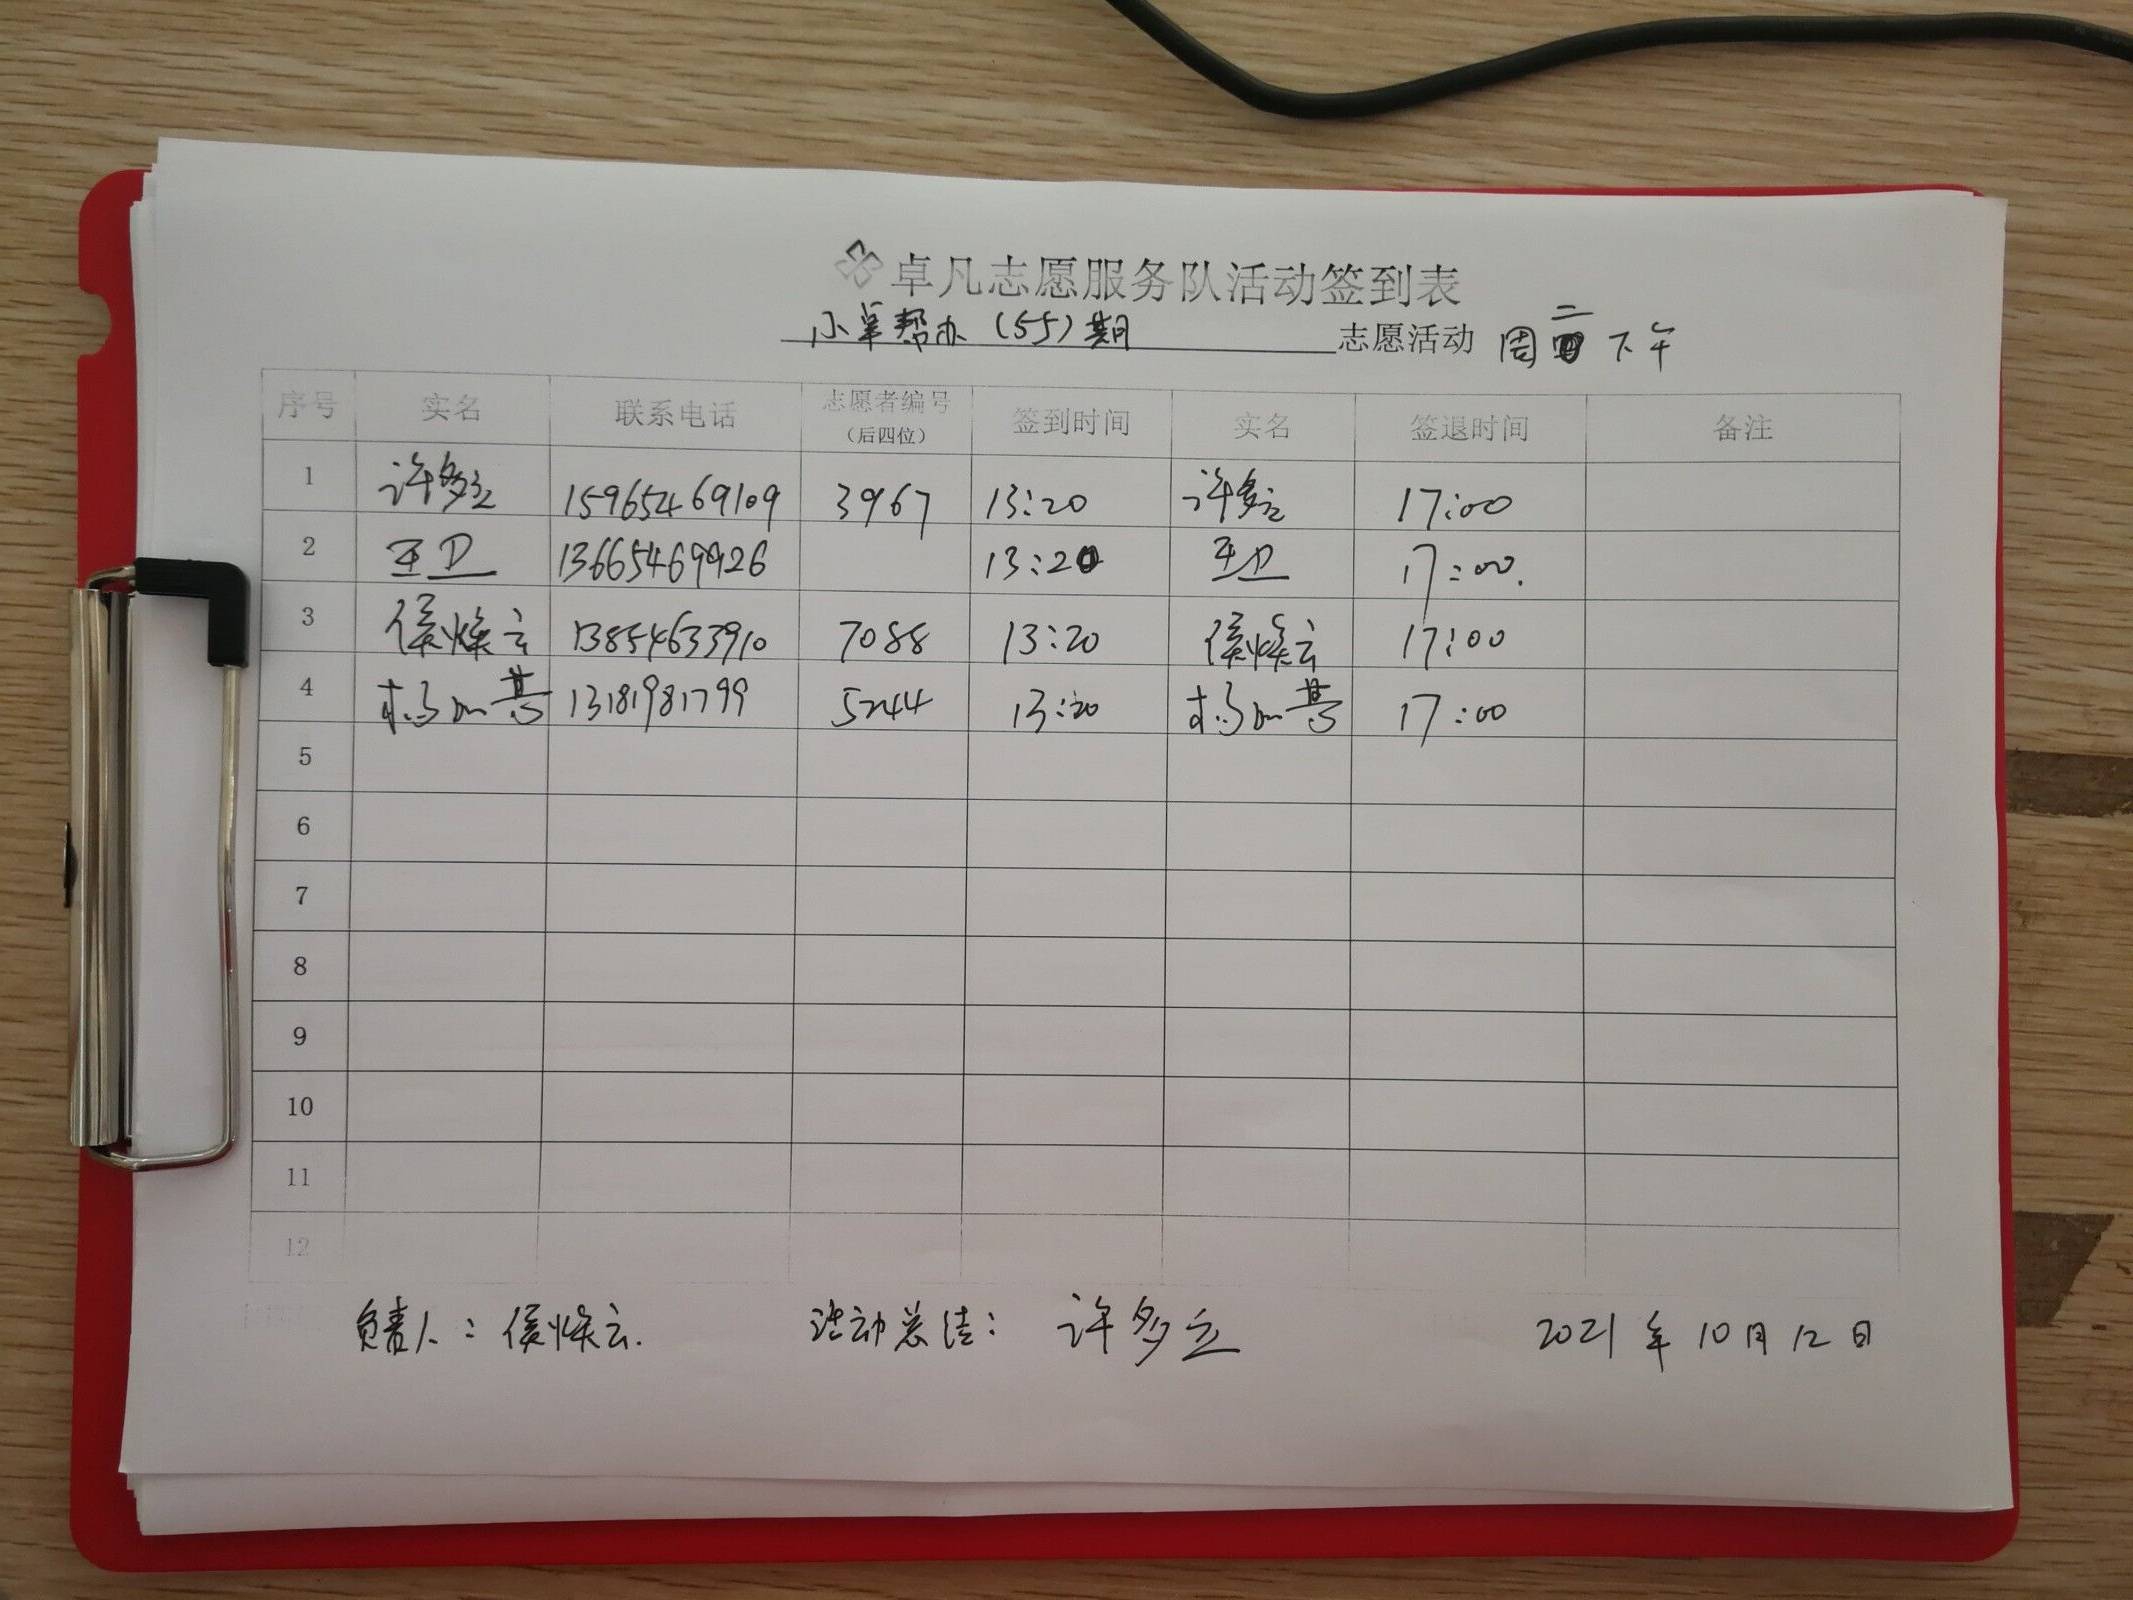 卓凡志愿服务队活动签到表
小卓帮办（55）期 志愿活动 周二下午
序号 实名 联系电话 志愿者编号（后四位） 签到时间 实名 签退时间 备注
1 许多立 15965469109 3967 13:20 许多立 17:00
2 王卫 13665469926 13:20 王卫 17:00.
3 侯焕云 13854633910 7088 13:20 侯焕云 17:00
4 13181981799 5244 13:20 17:00
5
6
7
8
9
10
11
12
负责人：侯焕云. 活动总结：许多立 2021年10月12日